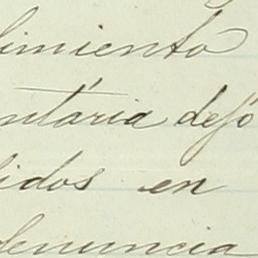 limiento
ntária dejó
lidos en
denuncia